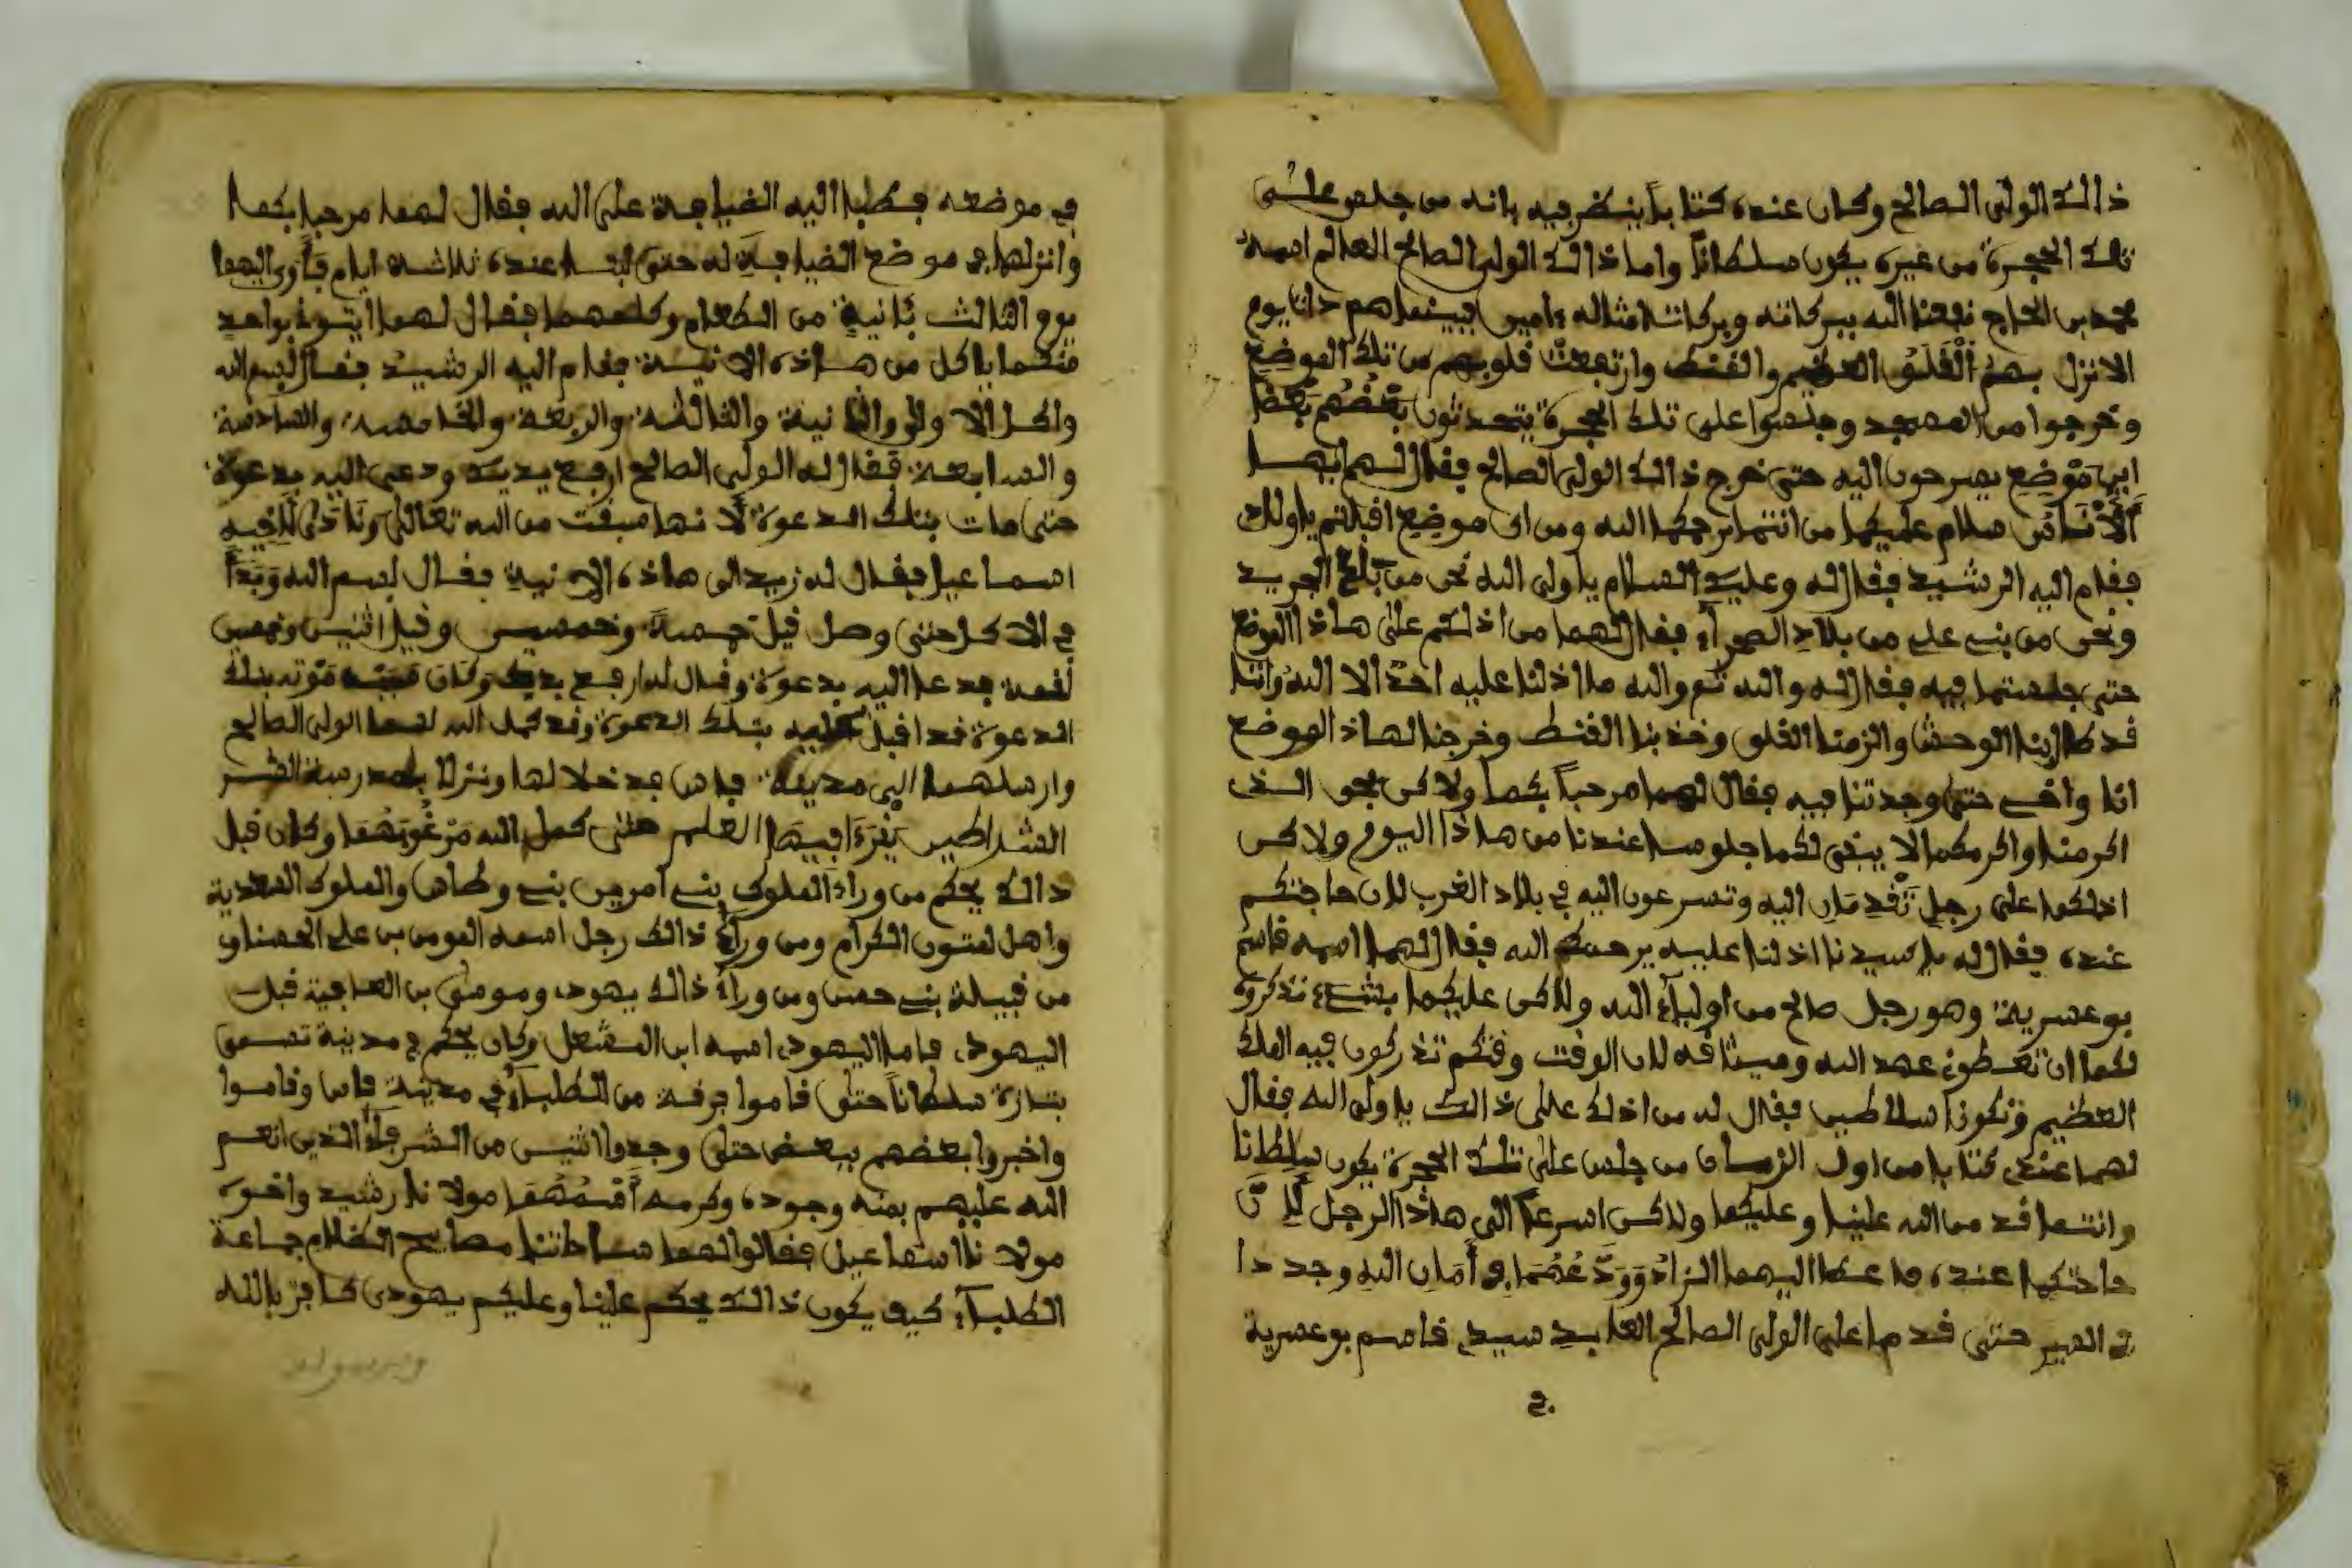 ذالك الولى الصالح وكان عنده كتابا ينظر فيه بانه من جلس على
تلك الحجرة من غيره يكون سلطانا واما ذالك الولى الصالح العالم اسمه
محمد بن الحاج نفعنا الله ببركاته وبركات امثاله ءامين فبينماهم ذات يوم
الا نزل بهم القلق العظيم والقنط وارتفعت قلوبهم من تلك الموضع
وخرجوا من المسجد وجلسوا على تلك الحجرة يتحدثون بعضهم بعضا
اين موضع يسرحون اليه حتى خرج ذالك الولى الصالح فقال لهم ايها
الانسان سلام عليكما من انتما يرحمكما الله ومن اى موضع اقبلتم ياولدى
فقام اليه الرشيد فقال له وعليك السلام ياولى الله نحن من بلاد الجريد
ونحن من بنى على من بلاد الصحرآء فقال لهما من اذلكم على هاذا الموضع
حتى جلستما فيه فقال له والله ثم والله ما اذلنا عليه احد الا الله واننا
قد طال بنا الوحش والزمنا القلق وخذبنا القنط وخرجنا لهاذ الموضع
انا واخى حتى وجدتنا فيه فقال لهما مرحبا بكما ولاكن بحق الذى
اكرمنا واكرمكما لا يبقى لكما جلوسا عندنا من هاذا اليوم ولاكن
اذلكما على رجل تقدمان اليه وتسرعون اليه في بلاد الغرب لان حاجتكم
عنده فقال له ياسيدنا اذلنا عليه يرحمكم الله فقال لهما اسمه قاسم
بوعسرية وهو رجل صالح من اوليآء الله ولاكن عليكما بشىء تذكروه
لكما ان تعطون عهد الله وميثاقه لان الوقت وقتكم تذركون فيه الملك
العظيم وتكونوا سلاطين فقال له من اذلك على ذالك ياولى الله فقال
لهما عندى كتابا من اول الزمان من جلس على تلك الحجرة يكون سلطانا
وانتما قد من الله علينا وعليكما ولاكن اسرعا الى هاذا الرجل لان
حاجتكما عنده فاعطا اليهما الزاد وودعهما في أمان الله وجددا
في السير حتى قدما على الولى الصالح العابد سيدى قاسم بوعسرية
في
في موضعه فطلبا اليه الضيافة على الله فقال لهما مرحبا بكما
وانزلهما في موضع الضيافة له حتى لبثا عنده ثلاثة ايام فأوى اليهما
يوم الثالث بآنية من الطعام وكلمهما فقال لهما ايتونى بواحد
منكما ياكل من هاذه الانية فقام اليه الرشيد فقال بسم الله
واكل الاولى والثانية والثالثة والربعة والخامسة والسادسة
والسابعة فقال له الولى الصالح ارفع يديك ودعى اليه بدعوة
حتى مات بتلك الدعوة لانها سبقت من الله تعالى ونادى لاخيه
اسماعيل فقال له زيد الى هاذه الانية فقال بسم الله وبدأ
في الاكل حتى وصل قيل خمسة وخمسين وقيل اثنين وخمسين
لقمة فدعا اليه بدعوة وقال له ارفع يديك وكان موته بتلك
الدعوة قد اقبل عليه بتلك الدعوة وقد كمل الله لهما الولى الصالح
وارسلهما الى مدينة فاس فدخلا لها ونزلا بمدرسة الشر
الشراطين يقرءا فيها العلم حتى كمل الله مرغوبهما وكان قبل
ذالك يحكم من ورآء الملوك بنى امرين بنى وطاس والملوك السعدية
واهل لمتون الكرام ومن ورآء ذالك رجل اسمه المومن بن على الحسناوى
من قبيلة بنى حسن ومن ورآء ذالك يهودى وموسى بن العافية قبل
اليهودى فاما اليهودى اسمه ابن المشعل وكان يحكم في مدينة تسمى
بتازة سلطانا حتى قاموا فرقة من الطلبآء في مدينة فاس وقاموا
واخبروا بعضهم ببعض حتى وجدوا اثنين من الشرفآء الذين انعم
الله عليهم بمنه وجوده وكرمه أسمهما مولانا رشيد واخوه
مولانا اسماعيل فقالوا لهما ساداتنا مصابح الظلام جماعة
الطلبآء كيف يكون ذالك يحكم علينا وعليكم يهودى كافر بالله
وبرسوله